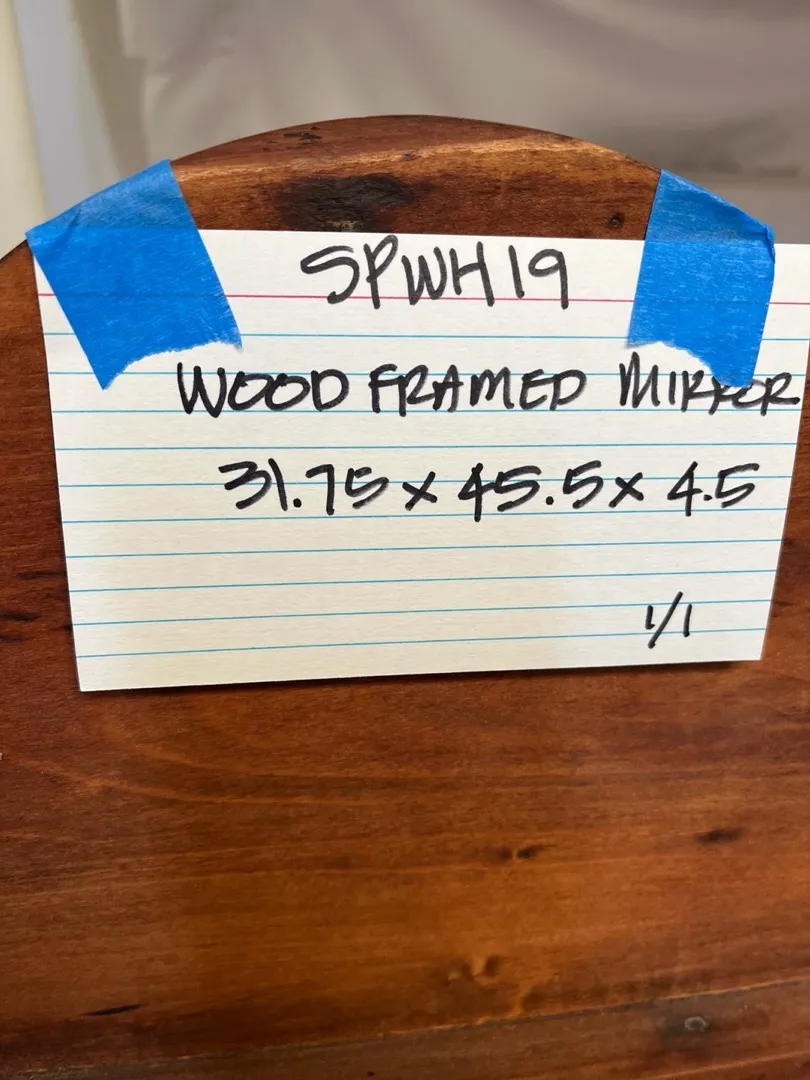 SPWH19
WOOD FRAMED MIRROR
31.75 x 45.5 x 4.5
1/1